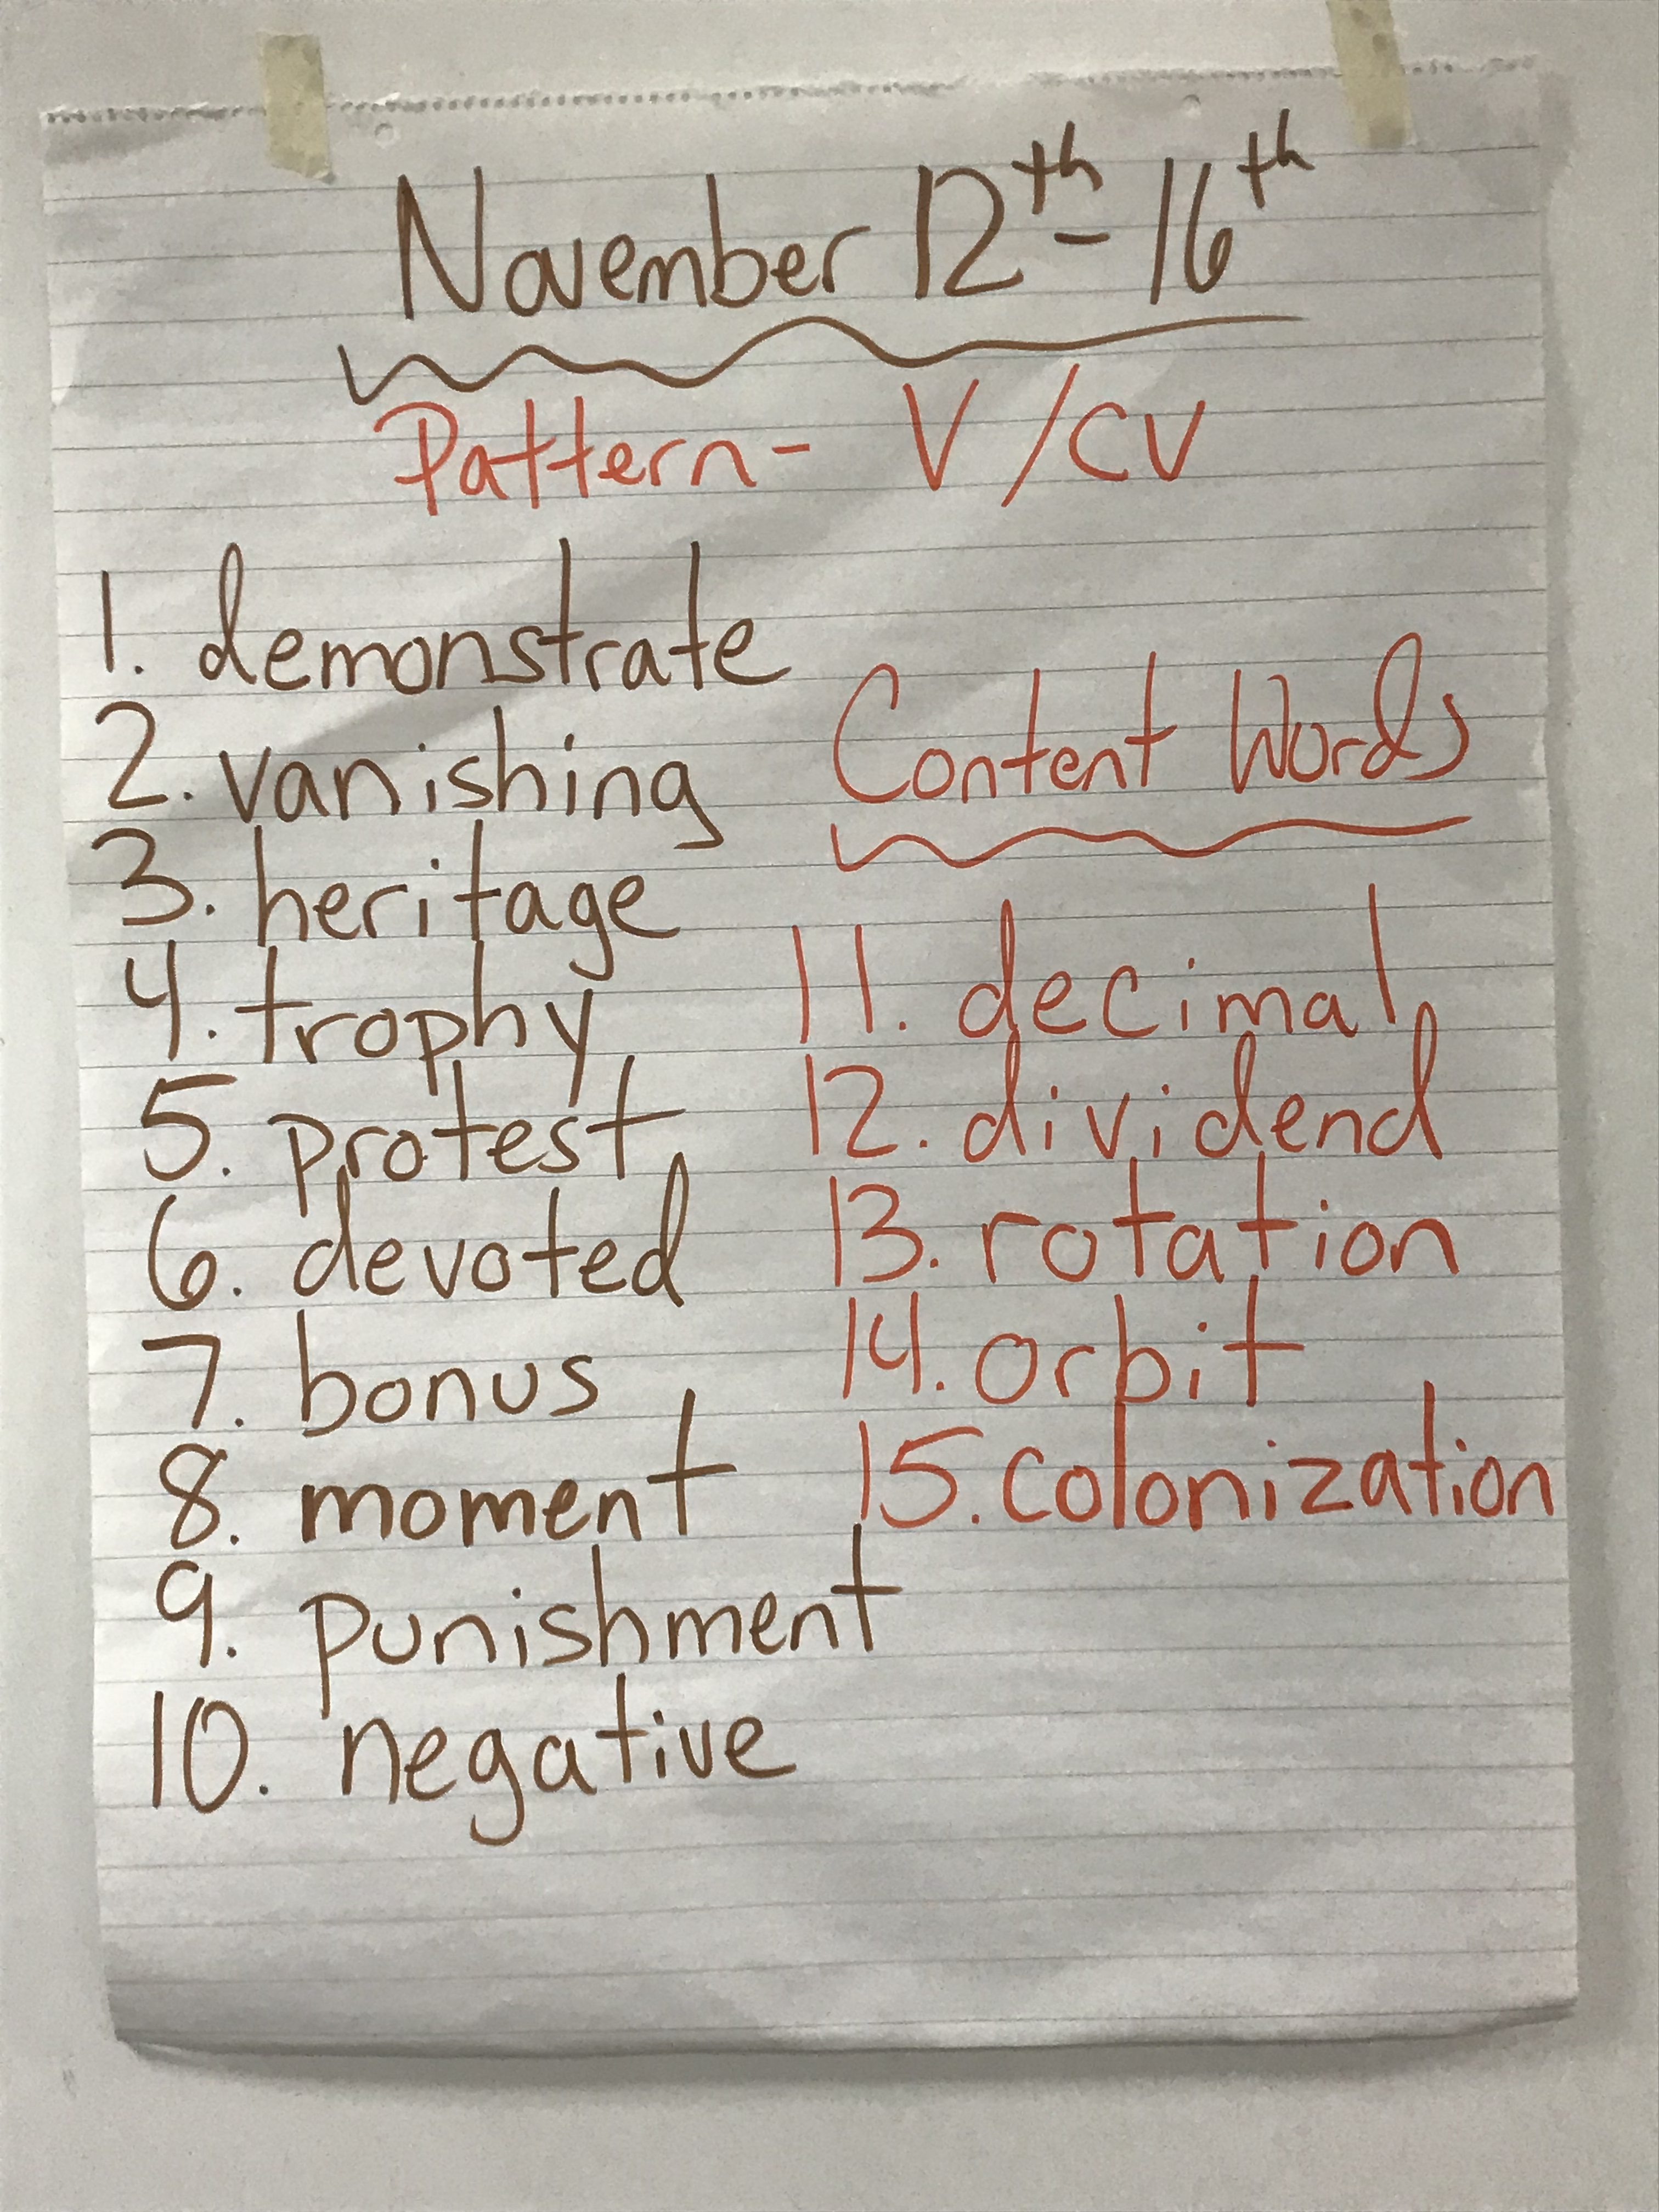 November 12th - 16th
Pattern - V/CV
1. demonstrate
2. vanishing
3. heritage
4. trophy
5. protest
6. devoted
7. bonus
8. moment
9. punishment
10. negative
Content Words
11. decimal
12. dividend
13. rotation
14. orbit
15. colonization